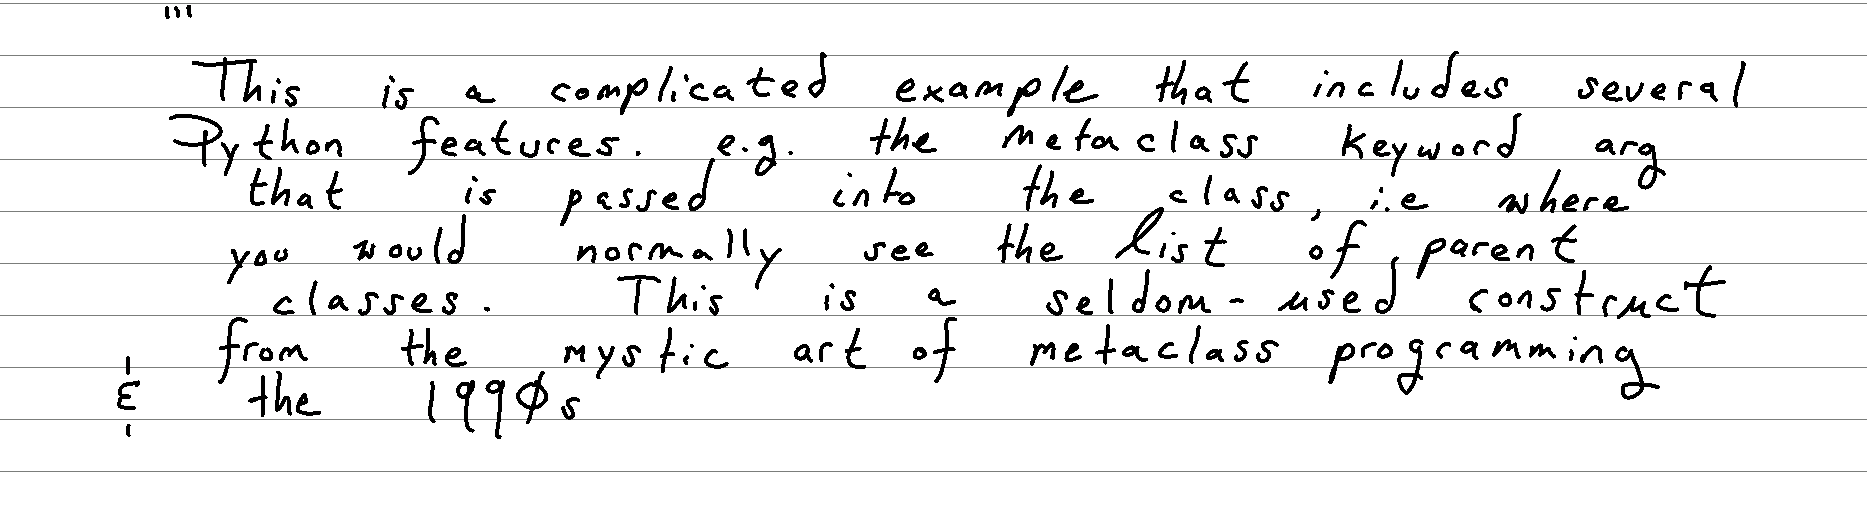 '''
This is a complicated example that includes several
Python features. e.g. the metaclass keyword arg
that is passed into the class, i.e where
you would normally see the list of parent
classes. This is a seldom-used construct
from the mystic art of metaclass programming
& the 1990s